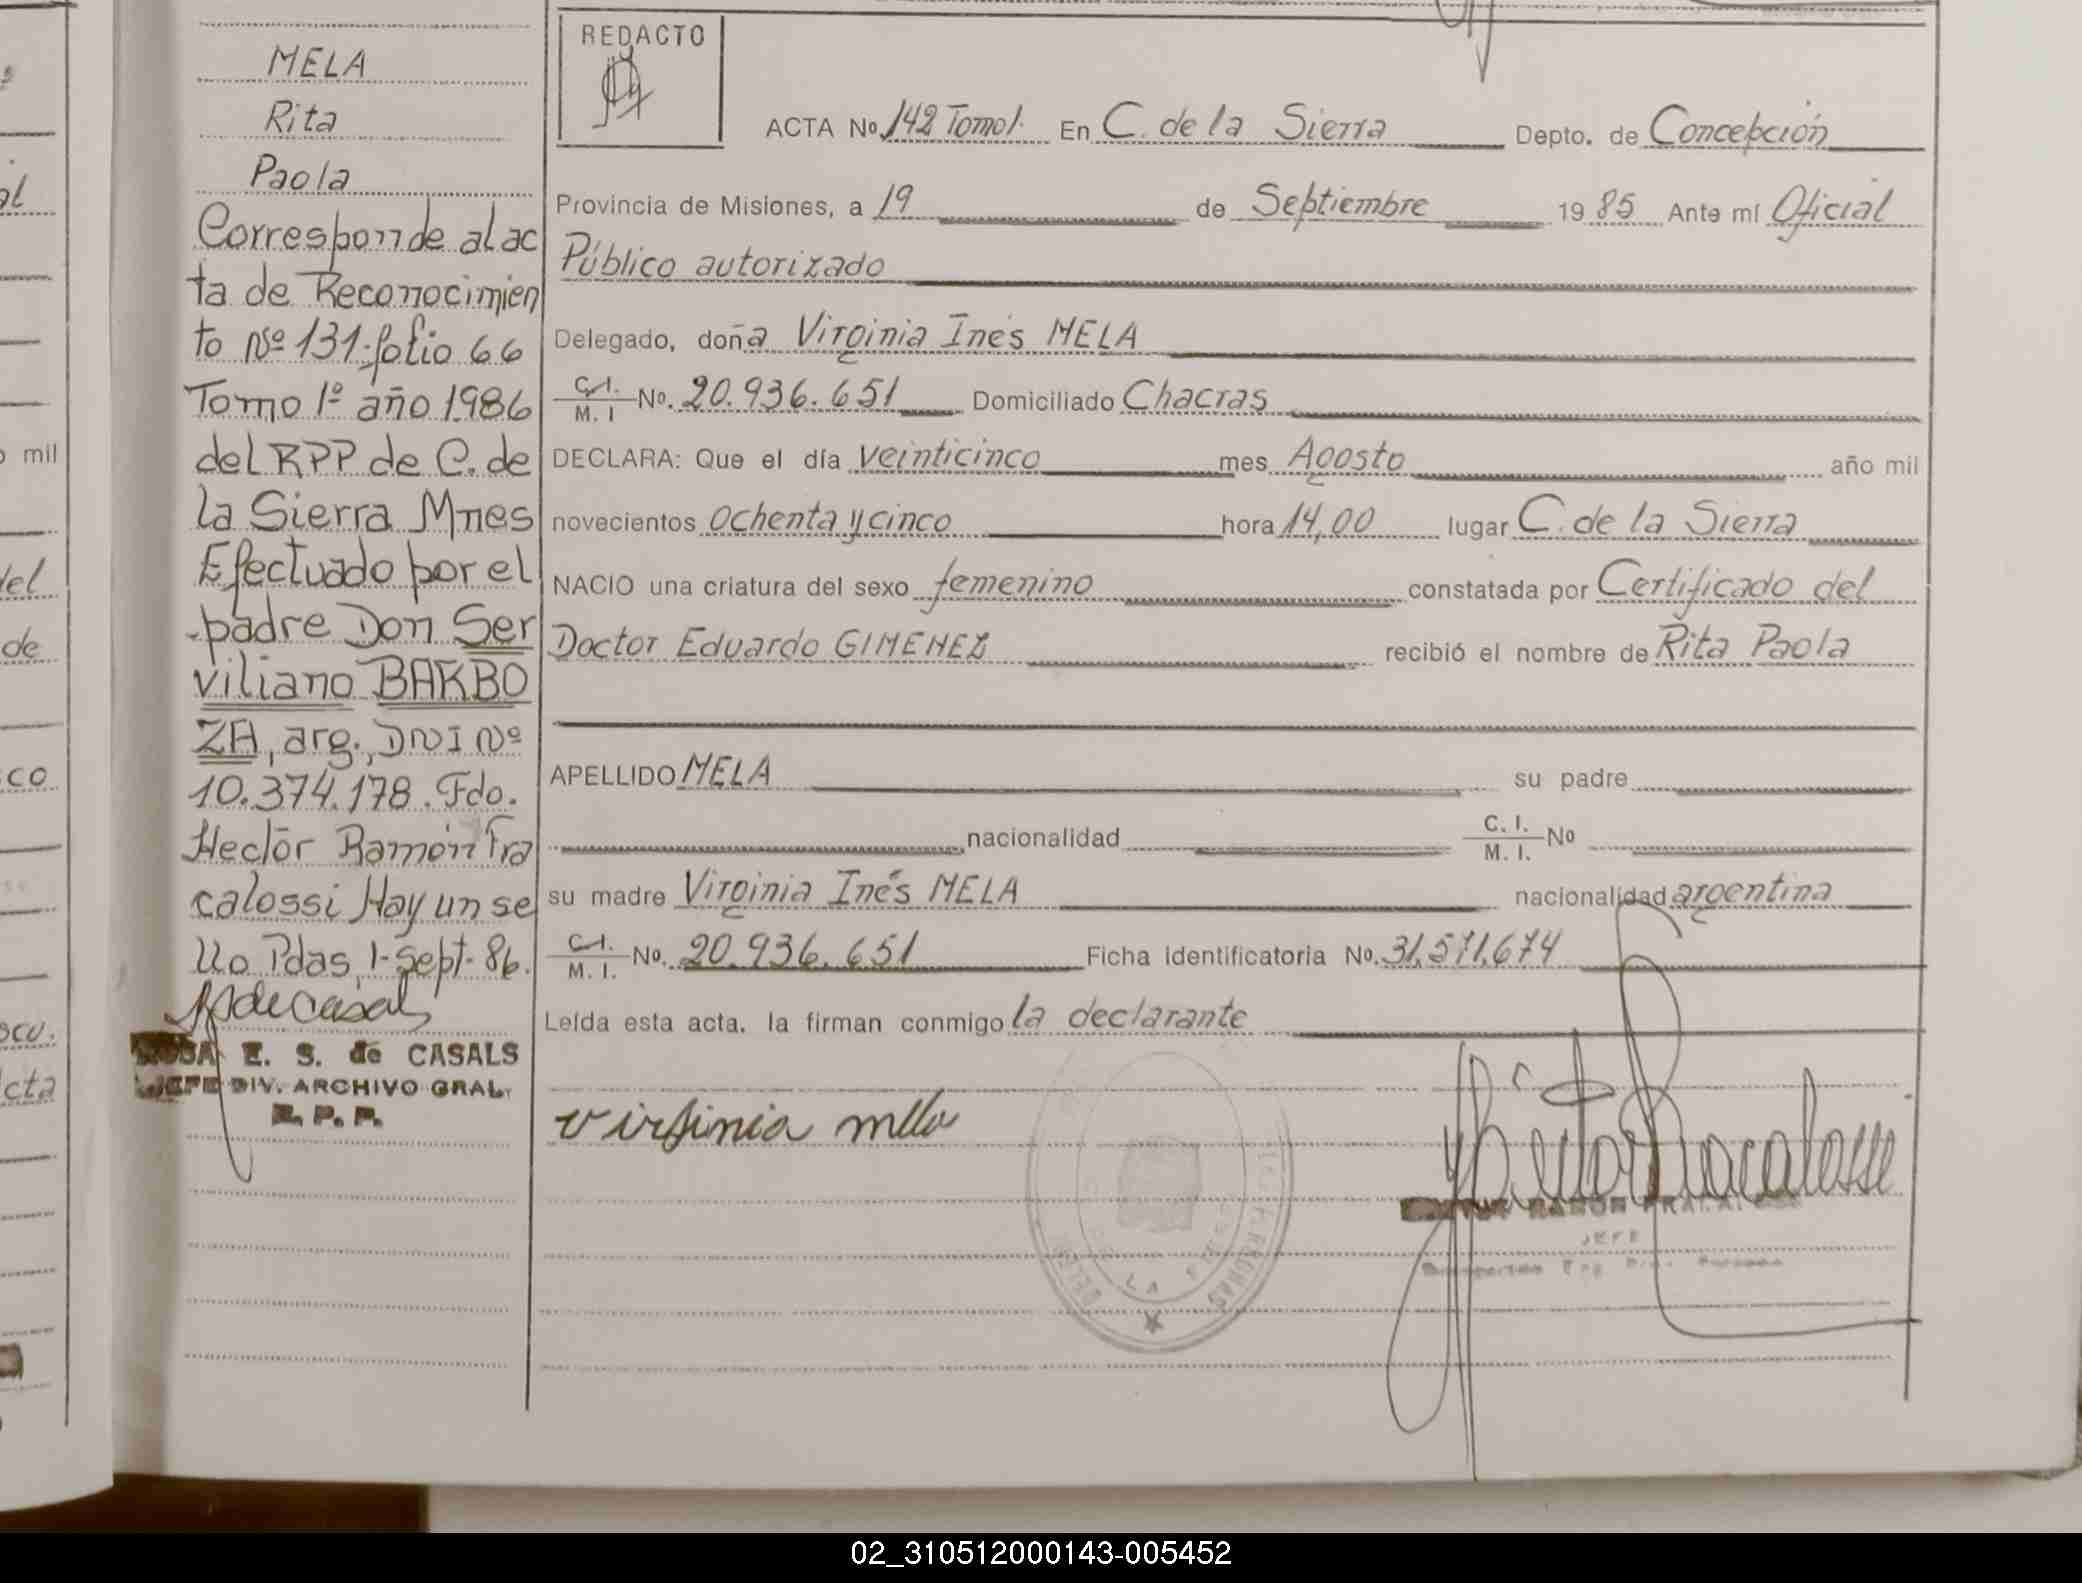 MELA
Rita
Paola
Corresponde al ac
ta de Reconocimien
to Nº 131 folio 66
Tomo 1º año 1986
del RPP de C. de
la Sierra Mnes
Efectuado por el
padre Don Ser
viliano BARBO
ZA, arg., DNI Nº
10.374.178. Fdo.
Hector Ramón Fra
calossi Hay un se
llo Pdas, 1-Sept-86.
E. S. de CASALS
JEFE DIV. ARCHIVO GRAL.
R. P. P.
REDACTO
ACTA No 142 Tomo 1. En C. de la Sierra Depto. de Concepción
Provincia de Misiones, a 19 de Septiembre 19 85 Ante mí Oficial
Público autorizado
Delegado, doña Virginia Inés MELA
C.I. M. I No. 20.936.651 Domiciliado Chacras
DECLARA: Que el día veinticinco mes Agosto año mil
novecientos ochenta y cinco hora 14,00 lugar C. de la Sierra
NACIO una criatura del sexo femenino constatada por Certificado del
Doctor Eduardo GIMENEZ recibió el nombre de Rita Paola
APELLIDO MELA su padre
nacionalidad C. I. M. I. No
su madre Virginia Inés MELA nacionalidad argentina
C.I. M. I. No. 20.936.651 Ficha identificatoria No. 31,571,674
Leída esta acta, la firman conmigo la declarante
virginia mela
RAMON
JEFE
mil
del
de
co
cta
02_310512000143-005452